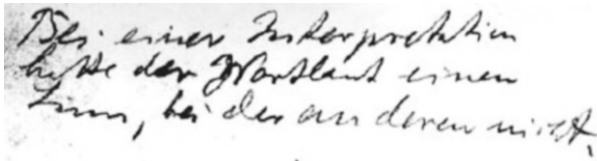 Bei einer Interpretation
hätte der Wortlaut einen
Sinn, bei der anderen nicht.